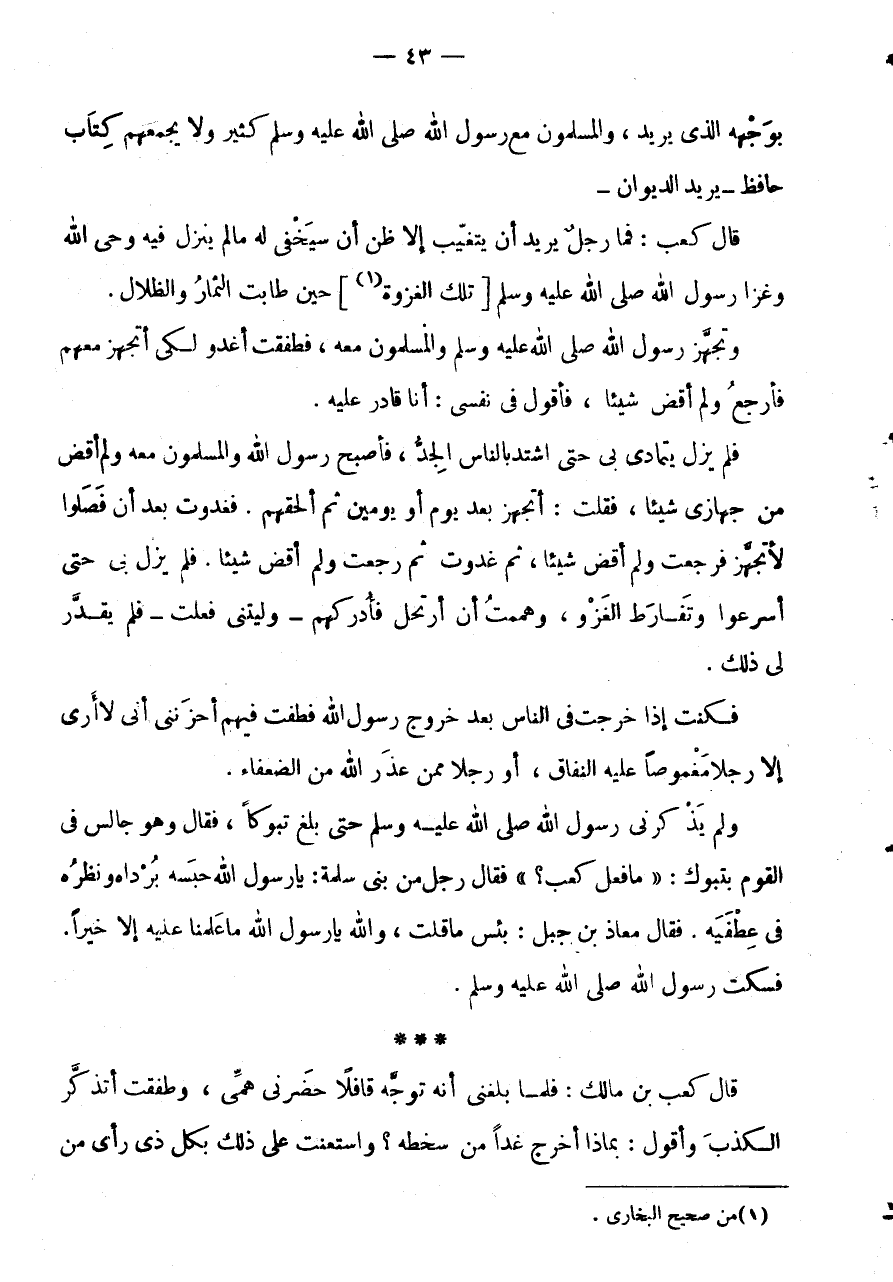 — ٤٣ —
بوَجْهه الذى يريد ، والمسلمون مع رسول الله صلى الله عليه وسلم كثير ولا يجمعهم كِتَاب
حافظ ــ يريد الديوان ــ
قال كعب : فما رجلٌ يريد أن يتغيّب إلا ظن أن سيَخْفى له مالم ينزل فيه وحى الله
وغزا رسول الله صلى الله عليه وسلم [ تلك الغزوة(١) ] حين طابت الثمارُ والظلال .
وتجهَّز رسول الله صلى الله عليه وسلم والمسلمون معه ، فطفقت أغدو لكى أتجهز معهم
فأرجعُ ولم أقض شيئا ، فأقول فى نفسى : أنا قادر عليه .
فلم يزل يتمادى بى حتى اشتد بالناس الجِدُّ ، فأصبح رسول الله والمسلمون معه ولم أقض
من جهازى شيئا ، فقلت : أتجهز بعد يوم أو يومين ثم ألحقهم . فغدوت بعد أن فَصَلوا
لأتجهَّز فرجعت ولم أقض شيئا ، ثم غدوت ثم رجعت ولم أقض شيئا . فلم يزل بى حتى
أسرعوا وتَفَارَط الغَزْو ، وهممتُ أن أرتحل فأُدركهم ــ وليتنى فعلت ــ فلم يقدَّر
لى ذلك .
فكنت إذا خرجت فى الناس بعد خروج رسول الله فطفت فيهم أحزَننى أنى لا أَرى
إلا رجلا مَغْموصاً عليه النفاق ، أو رجلا ممن عذَر الله من الضعفاء .
ولم يَذْكرنى رسول الله صلى الله عليه وسلم حتى بلغ تبوكاً ، فقال وهو جالس فى
القوم بتبوك : « مافعل كعب؟ » فقال رجل من بنى سلمة: يارسول الله حبَسه بُرْداه ونظرُه
فى عِطْفَيه . فقال معاذ بن جبل : بئس ماقلت ، والله يارسول الله ماعَلمنا عليه إلا خيراً.
فسكت رسول الله صلى الله عليه وسلم .
***
قال كعب بن مالك : فلما بلغنى أنه توجَّه قافلًا حضَرنى همِّى ، وطفقت أتذكَّر
الكذبَ وأقول : بماذا أخرج غداً من سخطه ؟ واستعنت على ذلك بكل ذى رأى من
(١) من صحيح البخارى .